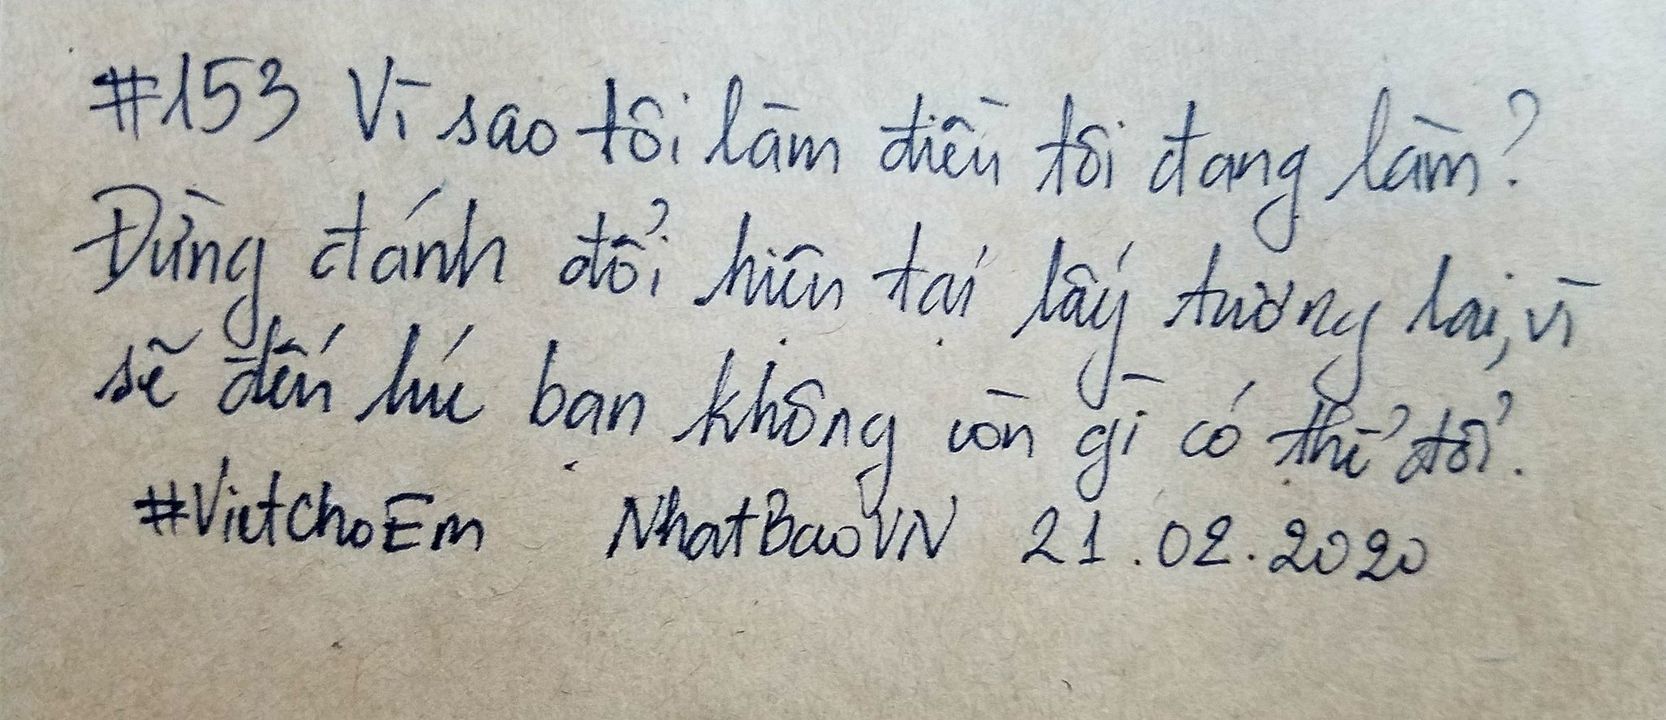 #153 Vì sao tôi làm điều tôi đang làm?
Đừng đánh đổi hiện tại lấy tương lai, vì
sẽ đến lúc bạn không còn gì có thể đổi.
#VietChoEm NhatBaoVN 21.02.2020